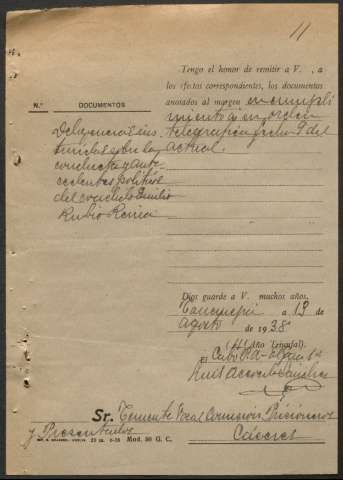 11
Tengo el honor de remitir a V. , a
los efectos correspondientes, los documentos
anotados al margen en cumpli
miento a su orden
telegráfica fecha 9 del
actual.
N.º DOCUMENTOS
Deligencias ins
truidas sobre la
conducta y ante
cedentes politicos
del vecino Emilio
Rubio
Dios guarde a V. muchos años.
a 13 de
agosto de 1938
(III Año Triunfal).
El Cabo
Luis Acevedo Sanchez
Sr. Teniente Vocal Comision Prisioneros
y Presentados Cáceres
Mod. 50 G. C.